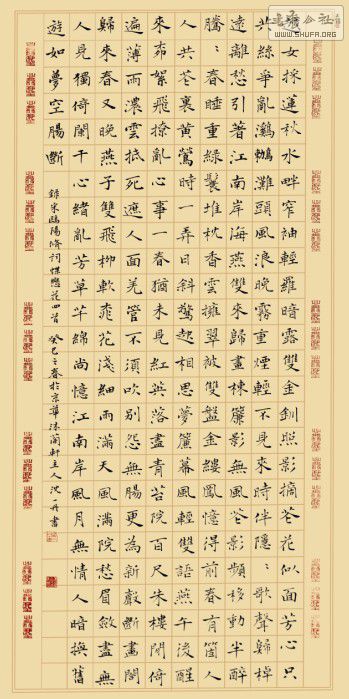 女採蓮秋水畔窄袖輕羅暗露雙金釧照影摘花花似面芳心只
共絲爭亂鸂鶒灘頭風浪晚霧重煙輕不見來時伴隱：歌聲歸棹
遠離愁引著江南岸海燕雙來歸畫棟簾影無風花影頻移動半醉
騰：春睡重綠鬟堆枕香雲擁翠被雙盤金縷鳳憶得前春有箇
人共花裏黃鶯時一弄日斜驚起相思夢簾幕風輕雙語燕午後醒
來柳絮飛撩亂心事一春猶未見紅英落盡青苔院百尺朱樓閑倚
遍薄雨濃雲抵死遮人面羌管不須吹別怨無腸更為新聲斷畫閣
歸來春又晚燕子雙飛柳軟桃花淺細雨滿天風滿院愁眉斂盡無
人見獨倚闌干心緒亂芳草芊綿尚憶江南岸風月無情人暗換舊
遊如夢空腸斷
錄宋歐陽脩詞蝶戀花四首 癸巳之春於京華沐蘭軒主人沈丹書
WWW.SHUFA.ORG